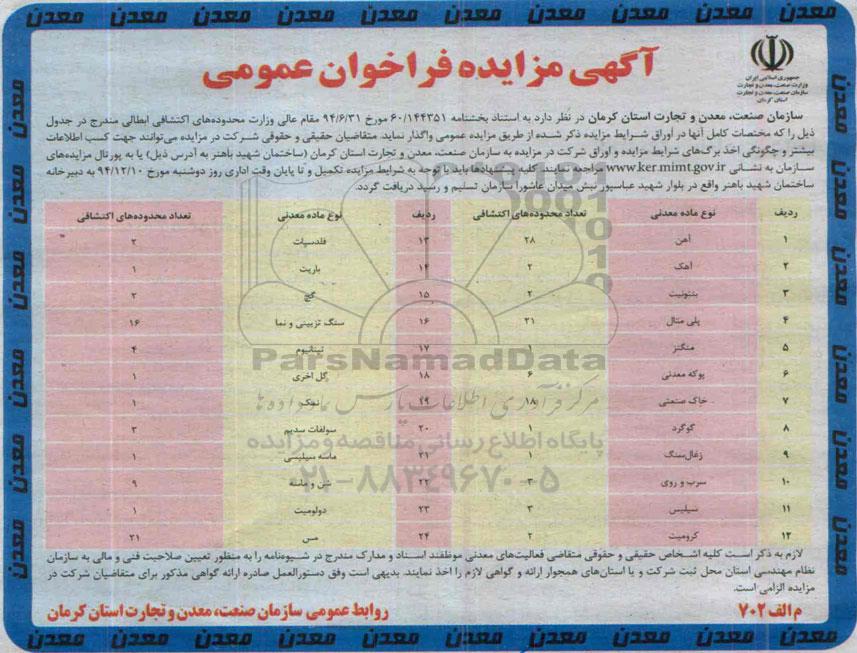 معدن معدن معدن معدن معدن معدن معدن معدن معدن معدن
جمهوری اسلامی ایران
وزارت صنعت، معدن و تجارت
سازمان صنعت، معدن و تجارت
استان کرمان
آگهی مزایده فراخوان عمومی
سازمان صنعت، معدن و تجارت استان کرمان در نظر دارد به استناد بخشنامه ۶۰/۱۴۴۳۵۱ مورخ ۹۴/۶/۳۱ مقام عالی وزارت محدوده‌های اکتشافی ابطالی مندرج در جدول
ذیل را که مختصات کامل آنها در اوراق شرایط مزایده ذکر شده از طریق مزایده عمومی واگذار نماید. متقاضیان حقیقی و حقوقی شرکت در مزایده می‌توانند جهت کسب اطلاعات
بیشتر و چگونگی اخذ برگ‌های شرایط مزایده و اوراق شرکت در مزایده به سازمان صنعت، معدن و تجارت استان کرمان (ساختمان شهید باهنر به آدرس ذیل) یا به پورتال مزایده‌های
سازمان به نشانی www.ker.mimt.gov.ir مراجعه نمایند. کلیه پیشنهادها باید با توجه به شرایط مزایده تکمیل و تا پایان وقت اداری روز دوشنبه مورخ ۹۴/۱۲/۱۰ به دبیرخانه
ساختمان شهید باهنر واقع در بلوار شهید عباسپور نبش میدان عاشورا سازمان تسلیم و رسید دریافت گردد.
ردیف نوع ماده معدنی تعداد محدوده‌های اکتشافی ردیف نوع ماده معدنی تعداد محدوده‌های اکتشافی
۱ آهن ۲۸ ۱۳ فلدسپات ۲
۲ آهک ۲ ۱۴ باریت ۱
۳ بنتونیت ۲ ۱۵ گچ ۲
۴ پلی متال ۲۱ ۱۶ سنگ تزیینی و نما ۱۶
۵ منگنز ۱ ۱۷ تیتانیوم ۴
۶ پوکه معدنی ۶ ۱۸ گل اخری ۱
۷ خاک صنعتی ۱۸ ۱۹ نمک ۱
۸ گوگرد ۱ ۲۰ سولفات سدیم ۳
۹ زغال‌سنگ ۱ ۲۱ ماسه سیلیسی ۱
۱۰ سرب و روی ۳ ۲۲ شن و ماسه ۹
۱۱ سیلیس ۳ ۲۳ دولومیت ۱
۱۲ کرومیت ۲ ۲۴ مس ۲۱
ParsNamadData
مرکز فرآوری اطلاعات پارس نماد داده‌ها
پایگاه اطلاع رسانی مناقصه و مزایده
۰۲۱-۸۸۳۴۹۶۷۰-۵
لازم به ذکر است کلیه اشخاص حقیقی و حقوقی متقاضی فعالیت‌های معدنی موظفند اسناد و مدارک مندرج در شیوه‌نامه را به منظور تعیین صلاحیت فنی و مالی به سازمان
نظام مهندسی استان محل ثبت شرکت و یا استان‌های همجوار ارائه و گواهی لازم را اخذ نمایند. بدیهی است وفق دستورالعمل صادره ارائه گواهی مذکور برای متقاضیان شرکت در
مزایده الزامی است.
م الف ۷۰۲
روابط عمومی سازمان صنعت، معدن و تجارت استان کرمان
معدن معدن معدن معدن معدن معدن معدن معدن معدن معدن